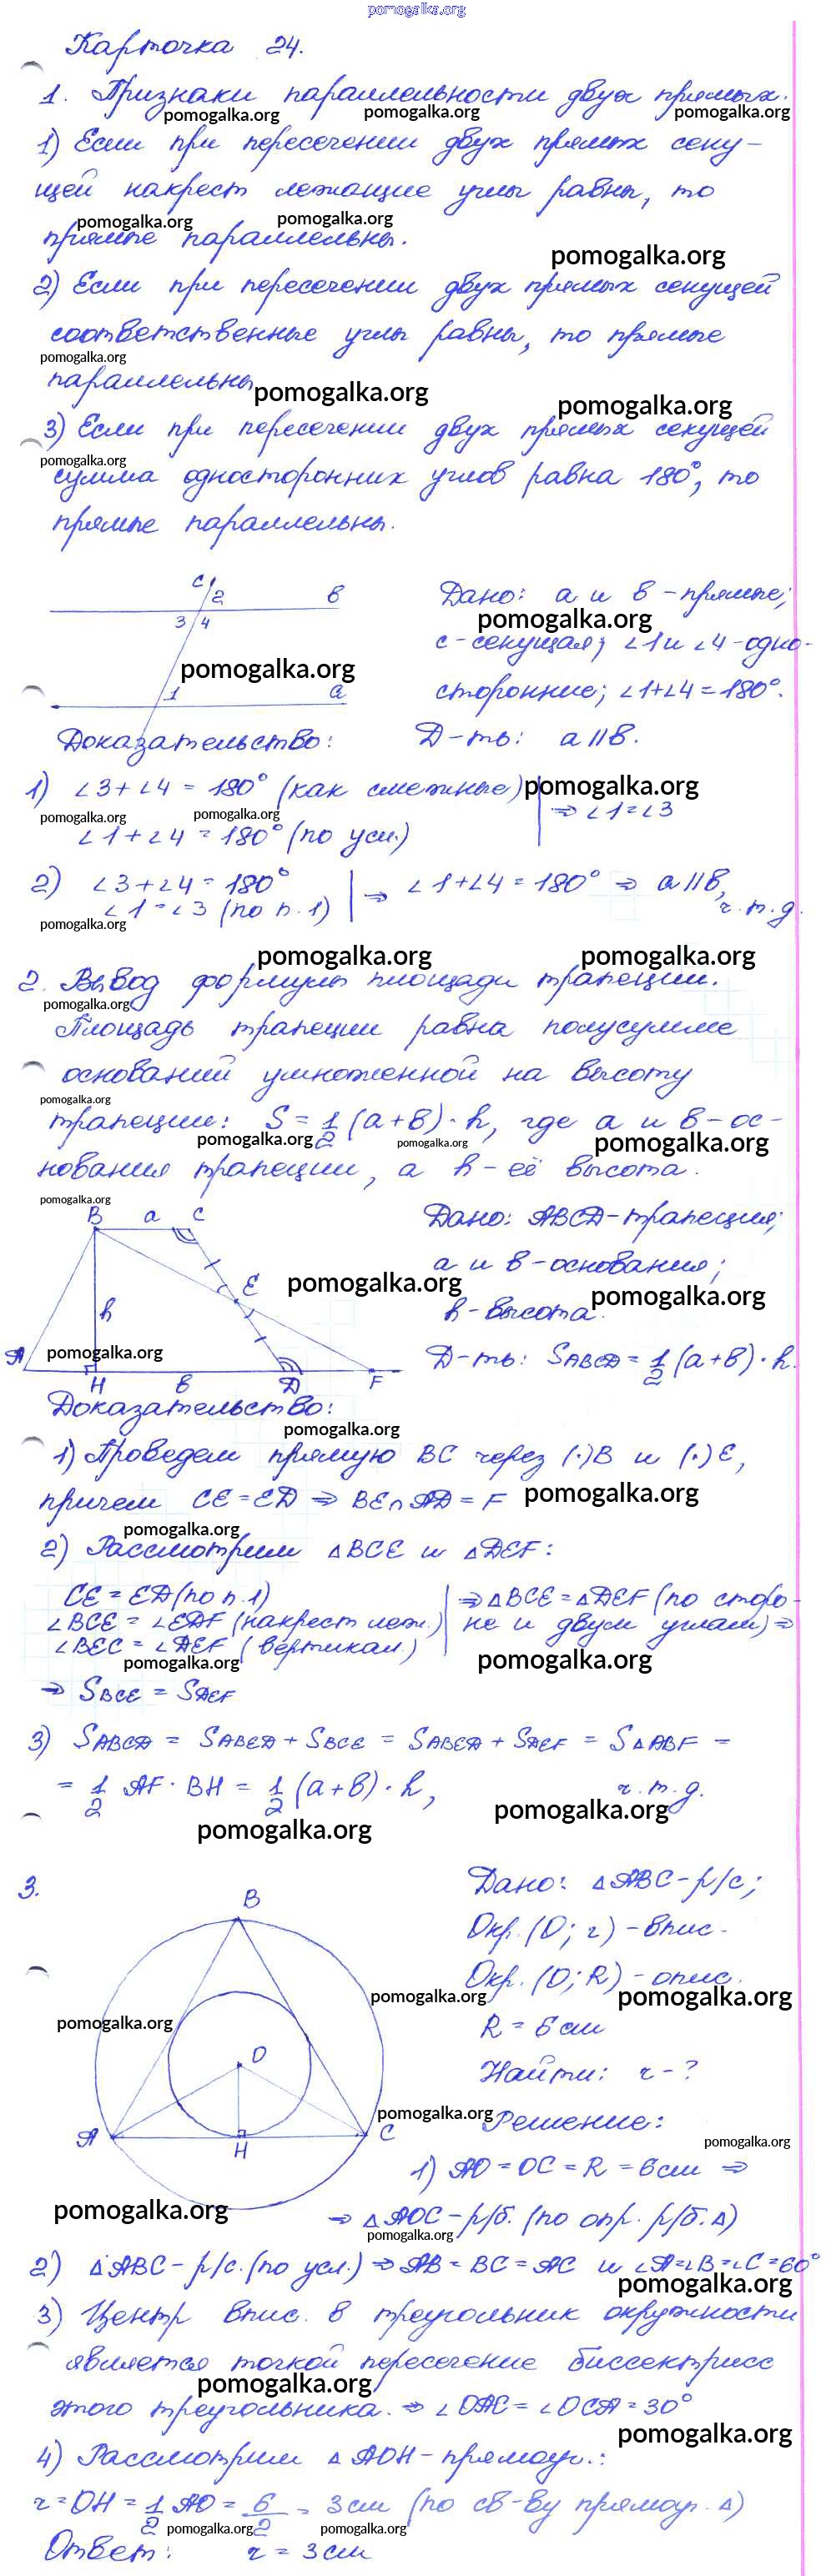 pomogalka.org
Карточка 24.
1. Признаки параллельности двух прямых.
pomogalka.org pomogalka.org pomogalka.org
1) Если при пересечении двух прямых секу-
щей накрест лежащие углы равны, то
pomogalka.org pomogalka.org
прямые параллельны.
pomogalka.org
2) Если при пересечении двух прямых секущей
соответственные углы равны, то прямые
pomogalka.org
параллельны
pomogalka.org pomogalka.org
3) Если при пересечении двух прямых секущей
pomogalka.org
сумма односторонних углов равна 180°, то
прямые параллельны.
c 2 b
3 4
1 a
pomogalka.org
Дано: a и b - прямые;
pomogalka.org
c - секущая; ∠1 и ∠4 - одно-
сторонние; ∠1+∠4 = 180°.
Д-ть: a || b.
Доказательство:
1) ∠3 + ∠4 = 180° (как смежные)
pomogalka.org
⇒ ∠1 = ∠3
pomogalka.org pomogalka.org
∠1 + ∠4 = 180° (по усл.)
2) ∠3 + ∠4 = 180°
∠1 = ∠3 (по п. 1)
⇒ ∠1 + ∠4 = 180° ⇒ a || b,
ч.т.д.
pomogalka.org
pomogalka.org pomogalka.org
2. Вывод формулы площади трапеции.
pomogalka.org
Площадь трапеции равна полусумме
оснований умноженной на высоту
pomogalka.org
трапеции: S = 1/2 (a+b) · h, где a и b - ос-
pomogalka.org pomogalka.org pomogalka.org
нования трапеции, а h - её высота.
pomogalka.org
B a C
E
h
A H b D F
pomogalka.org
Дано: ABCD - трапеция;
a и b - основания;
pomogalka.org pomogalka.org
h - высота.
Д-ть: SABCD = 1/2 (a+b) · h.
Доказательство:
pomogalka.org
1) Проведем прямую BC через (·)B и (·)E,
причем CE = ED ⇒ BE ∩ AD = F
pomogalka.org
pomogalka.org
2) Рассмотрим △BCE и △DEF:
CE = ED (по п. 1)
∠BCE = ∠EDF (накрест леж.)
∠BEC = ∠DEF (вертикал.)
⇒ △BCE = △DEF (по сторо-
не и двум углам) ⇒
pomogalka.org pomogalka.org
⇒ SBCE = SDEF
3) SABCD = SABED + SBCE = SABED + SDEF = S△ABF =
= 1/2 AF · BH = 1/2 (a+b) · h, ч.т.д.
pomogalka.org
pomogalka.org
3.
B
O
A H C
pomogalka.org
Дано: △ABC - р/с;
Окр. (O; r) - впис.
Окр. (O; R) - опис.
pomogalka.org pomogalka.org
R = 6 см
Найти: r - ?
pomogalka.org
Решение:
pomogalka.org
1) AO = OC = R = 6 см ⇒
pomogalka.org
⇒ △AOC - р/б. (по опр. р/б. △)
pomogalka.org
2) △ABC - р/с. (по усл.) ⇒ AB = BC = AC и ∠A=∠B=∠C=60°
pomogalka.org
3) Центр впис. в треугольник окружности
является точкой пересечение биссектрисс
pomogalka.org
этого треугольника. ⇒ ∠OAC = ∠OCA = 30°
pomogalka.org
4) Рассмотрим △AOH - прямоуг.:
r = OH = 1/2 AO = 6/2 = 3 см (по св-ву прямоуг. △)
pomogalka.org pomogalka.org
Ответ: r = 3 см